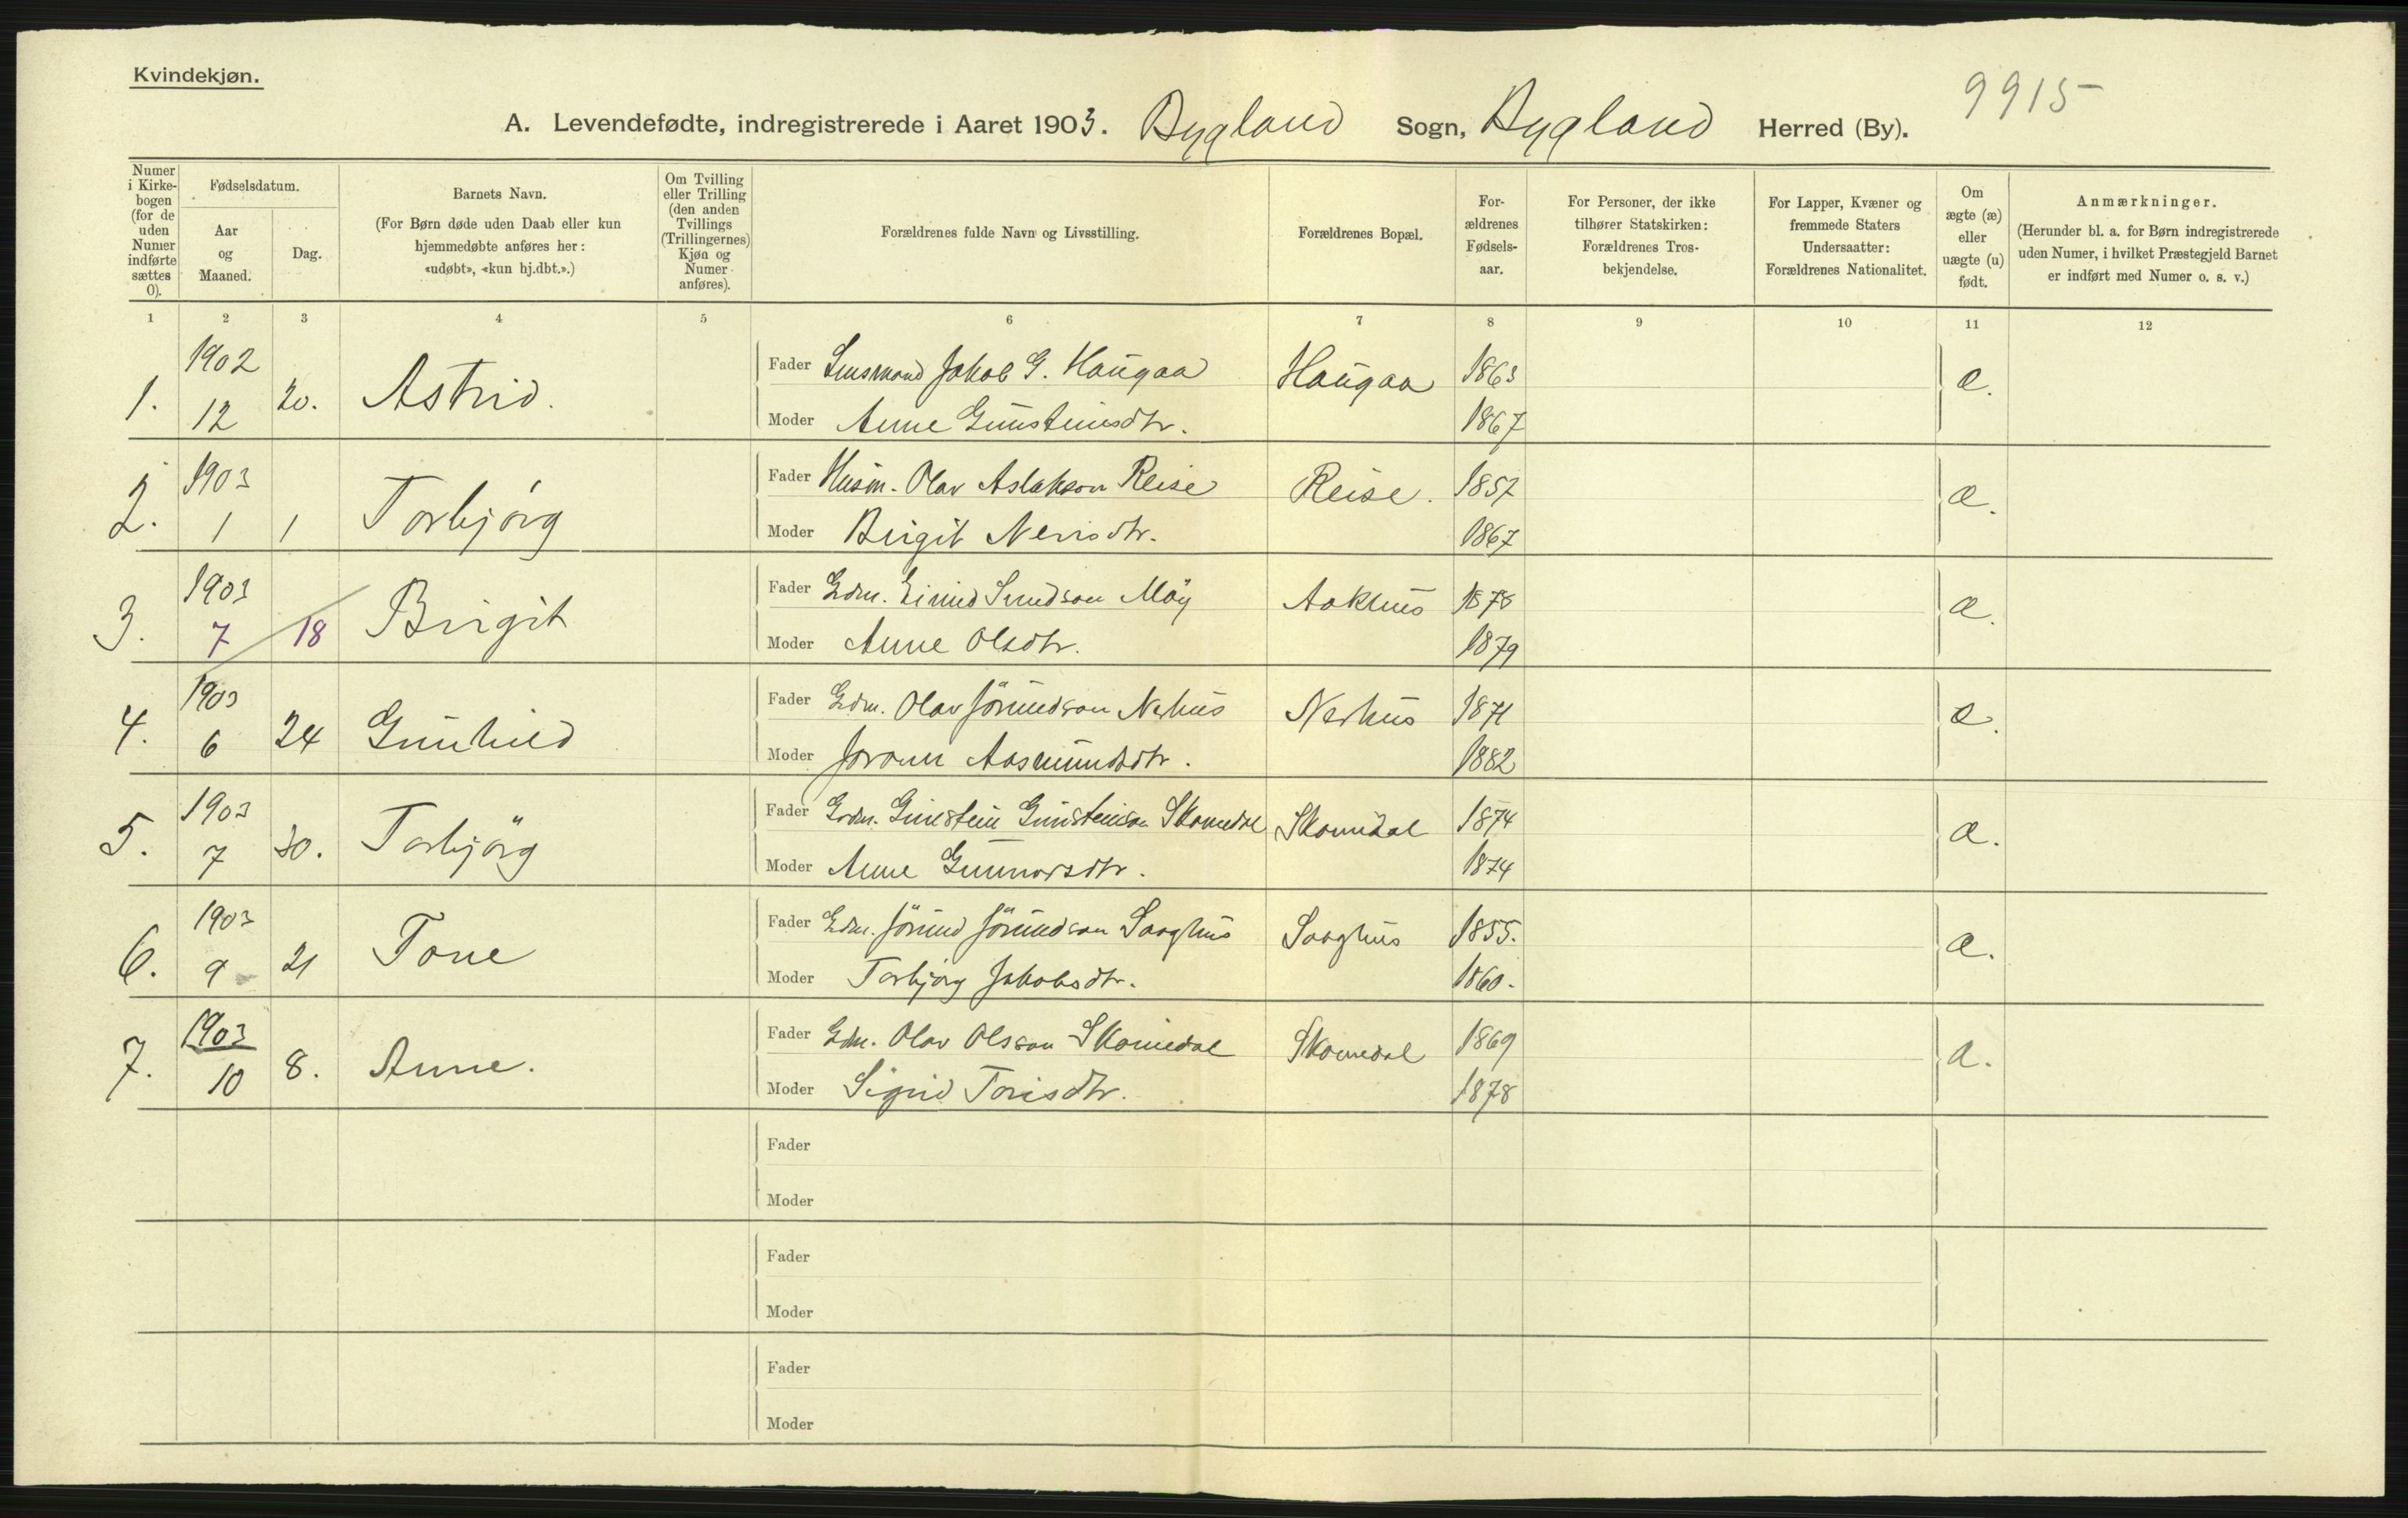 Kvindekjøn.
9915
A. Levendefødte, indregistrerede i Aaret 1903. Bygland Sogn, Bygland Herred (By).
Numer i Kirkebogen (for de uden Numer indførte sættes 0).
Fødselsdatum.
Aar og Maaned.
Dag.
Barnets Navn.
(For Børn døde uden Daab eller kun hjemmedøbte anføres her: «udøbt», «kun hj.dbt.».)
Om Tvilling eller Trilling (den anden Tvillings (Trillingernes) Kjøn og Numer anføres).
Forældrenes fulde Navn og Livsstilling.
Forældrenes Bopæl.
Forældrenes Fødselsaar.
For Personer, der ikke tilhører Statskirken: Forældrenes Trosbekjendelse.
For Lapper, Kvæner og fremmede Staters Undersaatter: Forældrenes Nationalitet.
Om ægte (æ) eller uægte (u) født.
Anmærkninger.
(Herunder bl. a. for Børn indregistrerede uden Numer, i hvilket Præstegjeld Barnet er indført med Numer o. s. v.)
1 2 3 4 5 6 7 8 9 10 11 12
1. 1902 12 20. Astrid. Fader Lensmand Jakob G. Haugaa Haugaa 1863 æ.
Moder Anne Gunsteinsdtr. 1867
2. 1903 1 1 Torbjórg Fader Husm. Olav Aslakson Reise Reise. 1857 æ.
Moder Birgit Nerisdtr. 1867
3. 1903 7 18 Birgit Fader Gdm. Eivind Knudson Möy Aakhus 1878 æ.
Moder Anne Olsdtr. 1879
4. 1903 6 24 Gunhild Fader Gdm. Olav Jörundson Nerhus Nerhus 1871 æ.
Moder Joronn Aasmundsdtr. 1882
5. 1903 7 30. Torbjörg Fader Grdm. Gunstein Gunsteinson Skomedal Skomedal 1874 æ.
Moder Anne Gunnarsdtr. 1874
6. 1903 9 21 Tone Fader Gdm. Jörund Jörundson Saaghus Saaghus 1855. æ.
Moder Torbjörg Jakobsdtr. 1860.
7. 1903 10 8. Anne. Fader Gdm. Olav Olsson Skomedal Skomedal 1869 æ.
Moder Sigrid Torisdtr. 1878
Fader
Moder
Fader
Moder
Fader
Moder